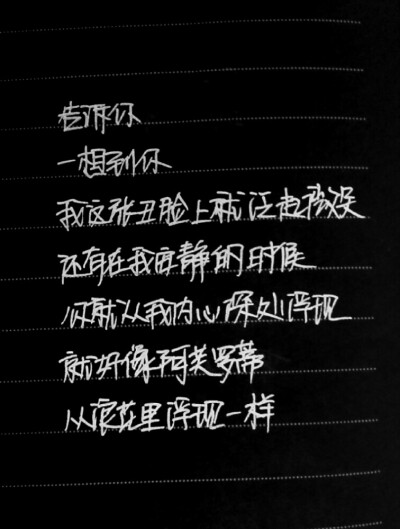 告诉你
一想到你
我这张丑脸上就泛起微笑
还有在我安静的时候
你就从我内心深处浮现
就好像阿芙罗蒂
从浪花里浮现一样